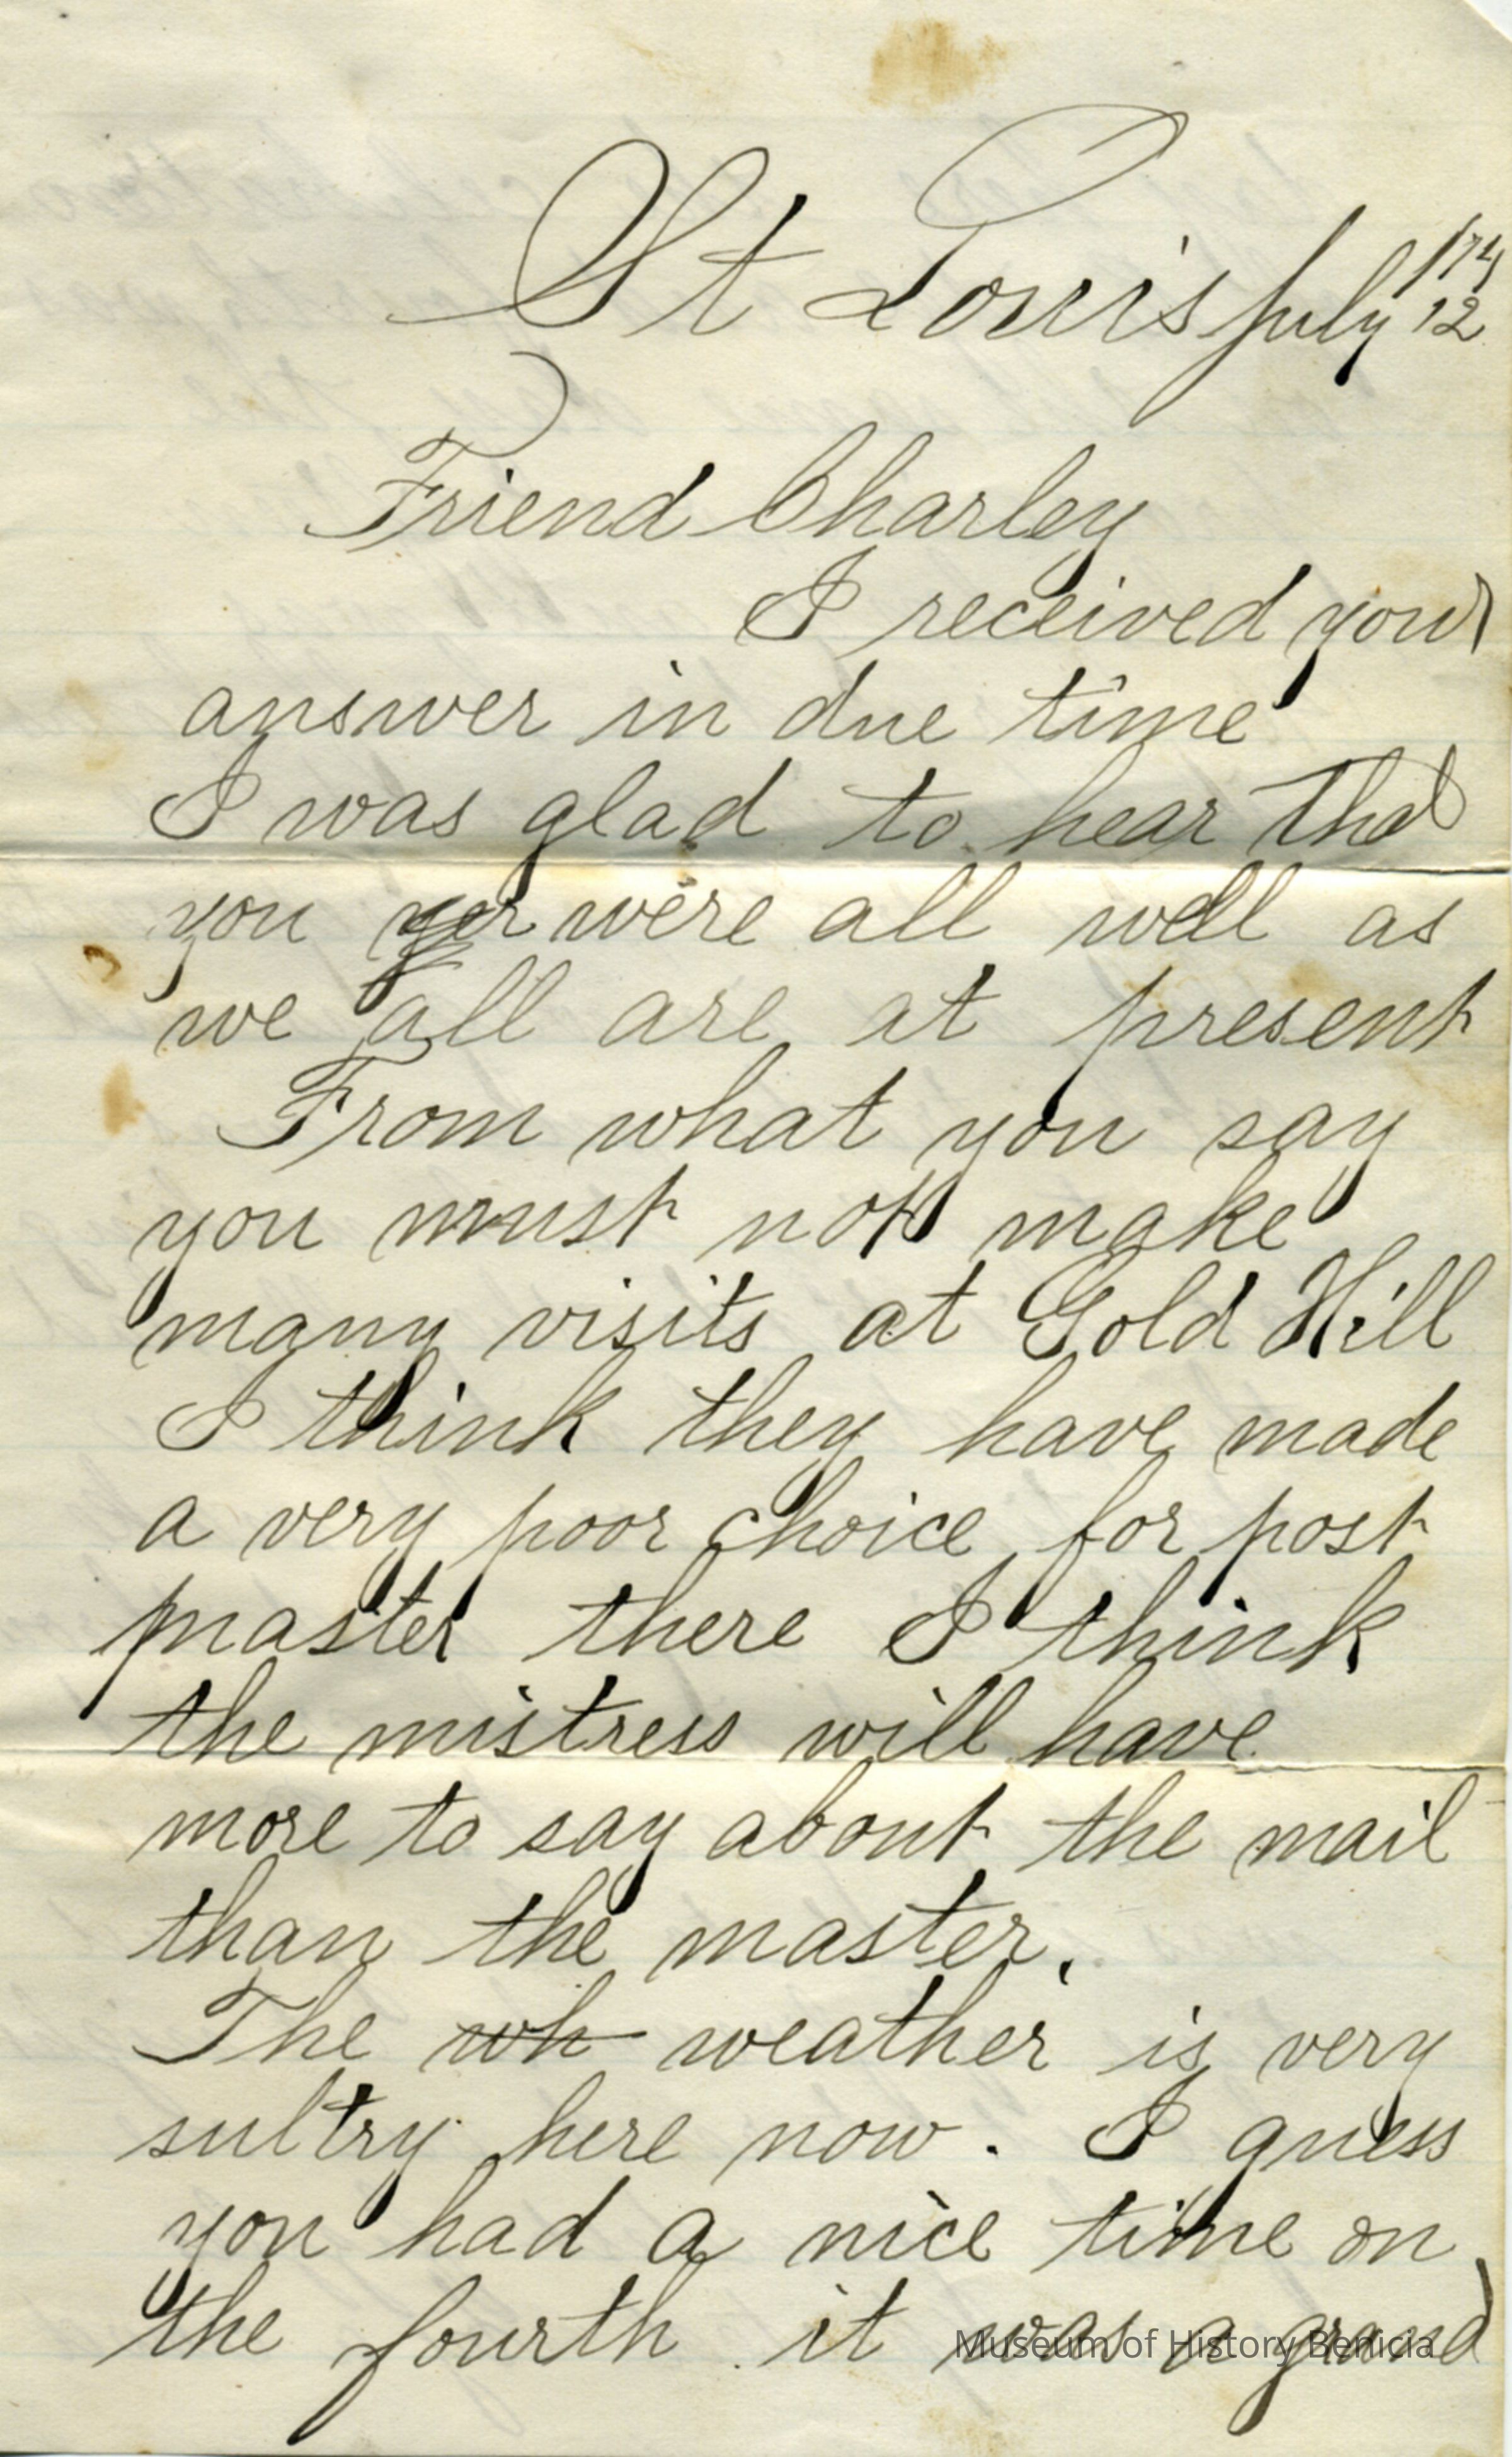 St Louis July 12 /74
Friend Charley
I received your
answer in due time
I was glad to hear that
you yor were all well as
we all are at present
From what you say
you must not make
many visits at Gold Hill
I think they have made
a very poor choice for post
master there I think
the mistress will have
more to say about the mail
than the master.
The wh weather is very
sultry here now. I guess
you had a nice time on
the fourth it was a grand
Museum of History Benicia